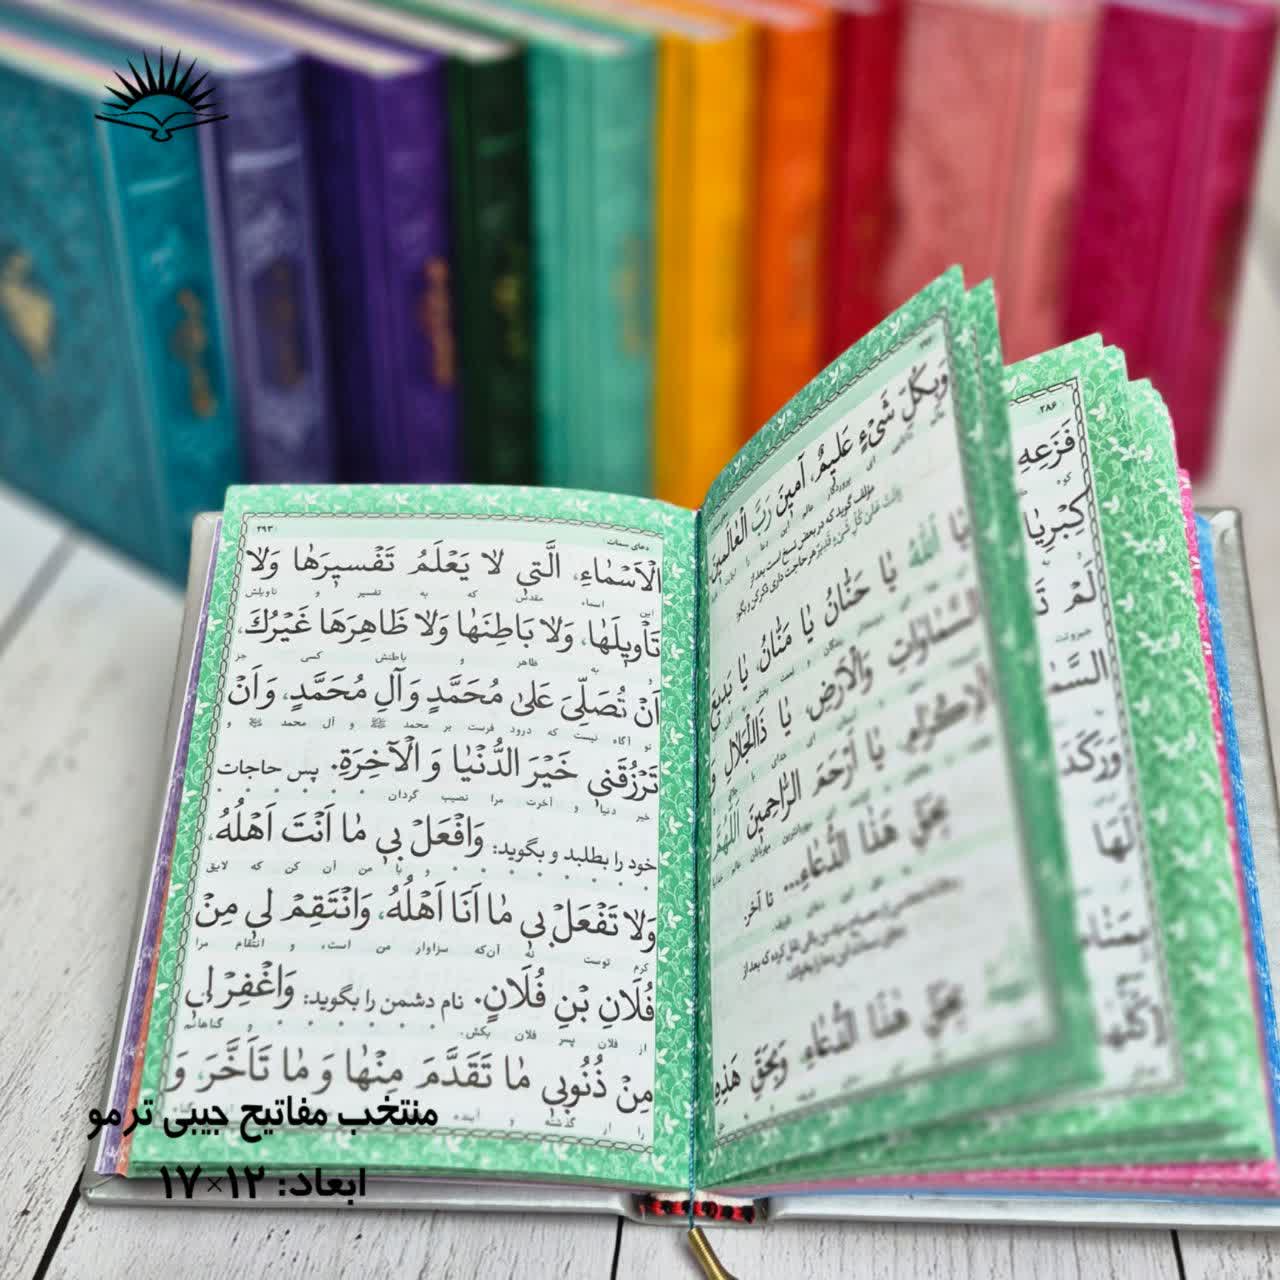 دعای سمات
۲۹۳
الْاَسْمٰاءِ، الَّتي لا يَعْلَمُ تَفْسيرَهٰا وَلا
این اسماء مقدس که به تفسیر و تاویلش
تَأويلَهٰا، وَلا بَاطِنَهٰا وَلا ظَاهِرَهَا غَيْرُكَ،
و به ظاهر و باطنش کسی جز
اَنْ تُصَلِّيَ عَلىٰ مُحَمَّدٍ وَآلِ مُحَمَّدٍ، وَاَنْ
تو آگاه نیست که درود فرست بر محمد ﷺ و آل محمد ﷺ و
تَرْزُقَني خَيْرَ الدُّنْيٰا وَ الْآخِرَةِ. پس حاجات
خیر دنیا و آخرت مرا نصیب گردان
خود را بطلبد و بگوید: وَافْعَلْ بي مٰا اَنْتَ اَهْلُهُ،
و با من آن کن که لایق
وَلا تَفْعَلْ بي مٰا اَنَا اَهْلُهُ، وَانْتَقِمْ لي مِنْ
کرم توست نه آن‌که سزاوار من است، و انتقام مرا
فُلَانِ بْنِ فُلَانٍ. نام دشمن را بگوید: وَاغْفِرْ لي
از فلان پسر فلان بکش. و گناهانم
مِنْ ذُنُوبي مٰا تَقَدَّمَ مِنْهٰا وَ مٰا تَاَخَّرَ، وَ
را از گذشته و آینده
وَبِكُلِّ شَيْءٍ عَليمٌ، آمينَ رَبَّ الْعٰالَمينَ
مؤلف گوید که در بعض نسخ است بعد از
وَاَنْتَ عَلىٰ كُلِّ شَيْءٍ قَديرٌ هر حاجت داری ذکر کن و بگو:
يٰا اَللهُ يٰا حَنّٰانُ يٰا مَنّٰانُ، يٰا بَديعَ
السَّمٰاوٰاتِ وَالْاَرْضِ، يٰا ذَاالْجَلالِ وَ
الْاِكْرٰامِ، يٰا اَرْحَمَ الرّٰاحِمينَ اَللّٰهُمَّ
بِحَقِّ هٰذَا الدُّعٰاءِ... تا آخر.
بِحَقِّ هٰذَا الدُّعٰاءِ، وَبِحَقِّ هٰذِهِ
۲۸۶
فَزَعِهِ
لَمْ
لَهَا
منتخب مفاتیح جیبی ترمو
ابعاد: ۱۲×۱۷